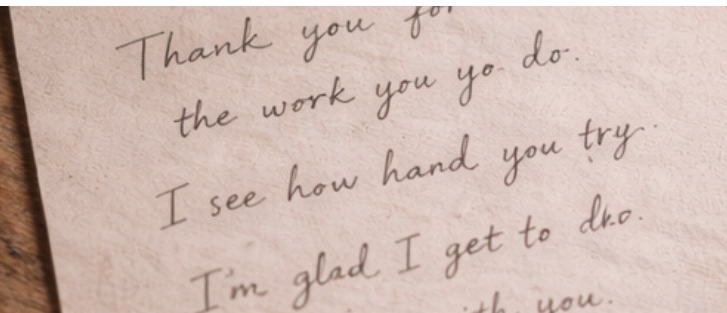 Thank you for
the work you yo do.
I see how hand you try.
I'm glad I get to dko.
with you.